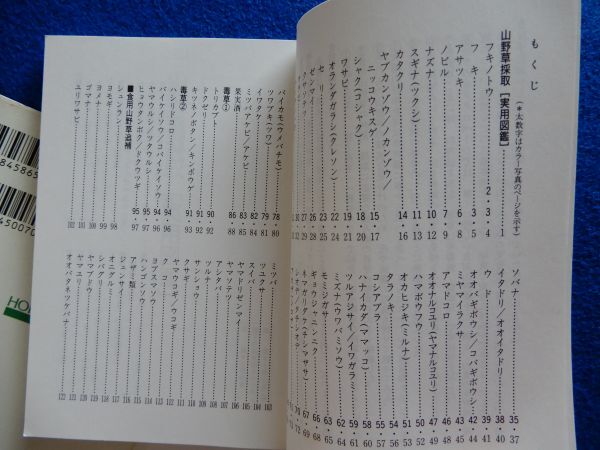 もくじ
（＊太数字はカラー写真のページを示す）
山野草採取［実用図鑑］……1
フキノトウ……2・3・4
フキ……3・5
アサツキ……6・8
ノビル……7・9
ナズナ……10・12
スギナ（ツクシ）……11・13
カタクリ……14・16
ヤブカンゾウ／ノカンゾウ／
ニッコウキスゲ……15・17
シャク（コシャク）……18・20
ワサビ……19・21
オランダガラシ（クレソン）……22・24
セリ……23・25
ゼンマイ……26・28
ソバナ……35・37
イタドリ／オオイタドリ……38・40
ウド……39・41
オオバギボウシ／コバギボウシ……42・44
ミヤマイラクサ……43・45
アマドコロ……46・48
オオナルコユリ（ヤマナルコユリ）……47・49
ハマボウフウ……50・52
オカヒジキ（ミルナ）……51・53
タラノキ……54・56
コシアブラ……55・57
ハナイカダ（ママッコ）……58・60
ツルアジサイ／イワガラミ……59・61
ミズ（ウワバミソウ）……62・64
モミジガサ……63・65
ギョウジャニンニク……66・68
ネマガリダケ（チシマザサ）……67・69
バイカモ（ウメバチモ）……78・80
ツワブキ（ツワ）……79・81
イワタケ……82・84
ミツバアケビ／アケビ……83・85
果実酒……86・88
毒草①
トリカブト……90・92
ドクゼリ……90・92
キツネノボタン／キンポウゲ……91・93
毒草②
ハシリドコロ……94・96
バイケイソウ／コバイケイソウ……94・96
ヤマウルシ／ツタウルシ……95・97
ヒョウタンボク／ドクウツギ……95・97
■食用山野草追補
シュンラン……98
ヨモギ……99
ヨメナ……100
ゴマナ……101
ユリワサビ……102
ミツバ……103
ツユクサ
スイバ
ヤマドリゼンマイ
ヤマソテツ
アシタバ
ツルナ
サンショウ
クサギ
ヤマウコギ／ウコギ
ヨブスマソウ
ハンゴンソウ
アザミ類
ジュンサイ
オニグルミ
シバグリ
ヤマブドウ
ヤマユリ
オオバタネツケバナ……122
HO